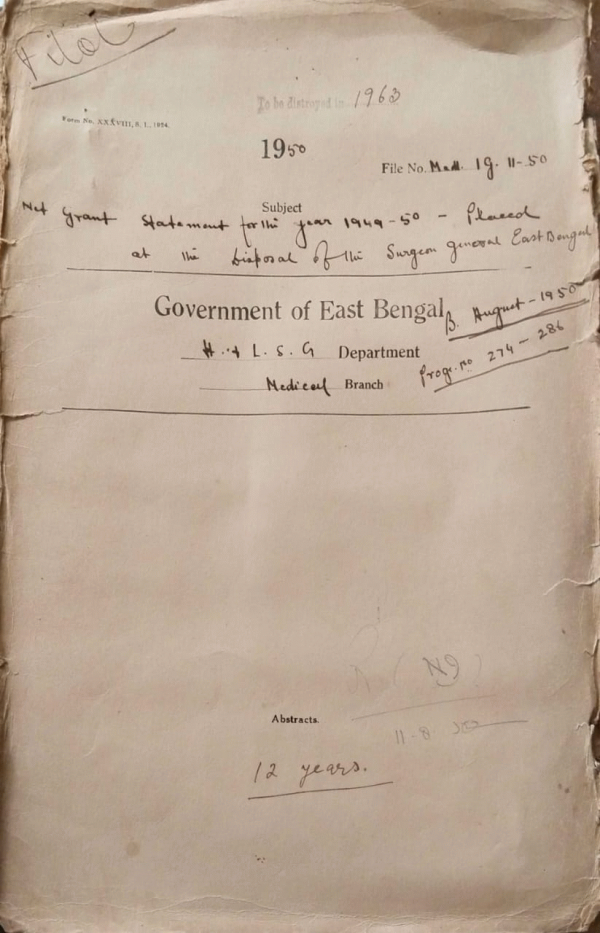 Filed
To be distroyed in 1963
Form No. XXXVIII, S. I., 1934.
1950
File No. Med. 1G. 11-50
Subject
Net Grant Statement for the year 1949-50 - Placed
at the Disposal of the Surgeon general East Bengal
Government of East Bengal
B. August - 1950
H. & L. S. G Department
Progs. no 274 - 286
Medical Branch
Abstracts.
12 years.